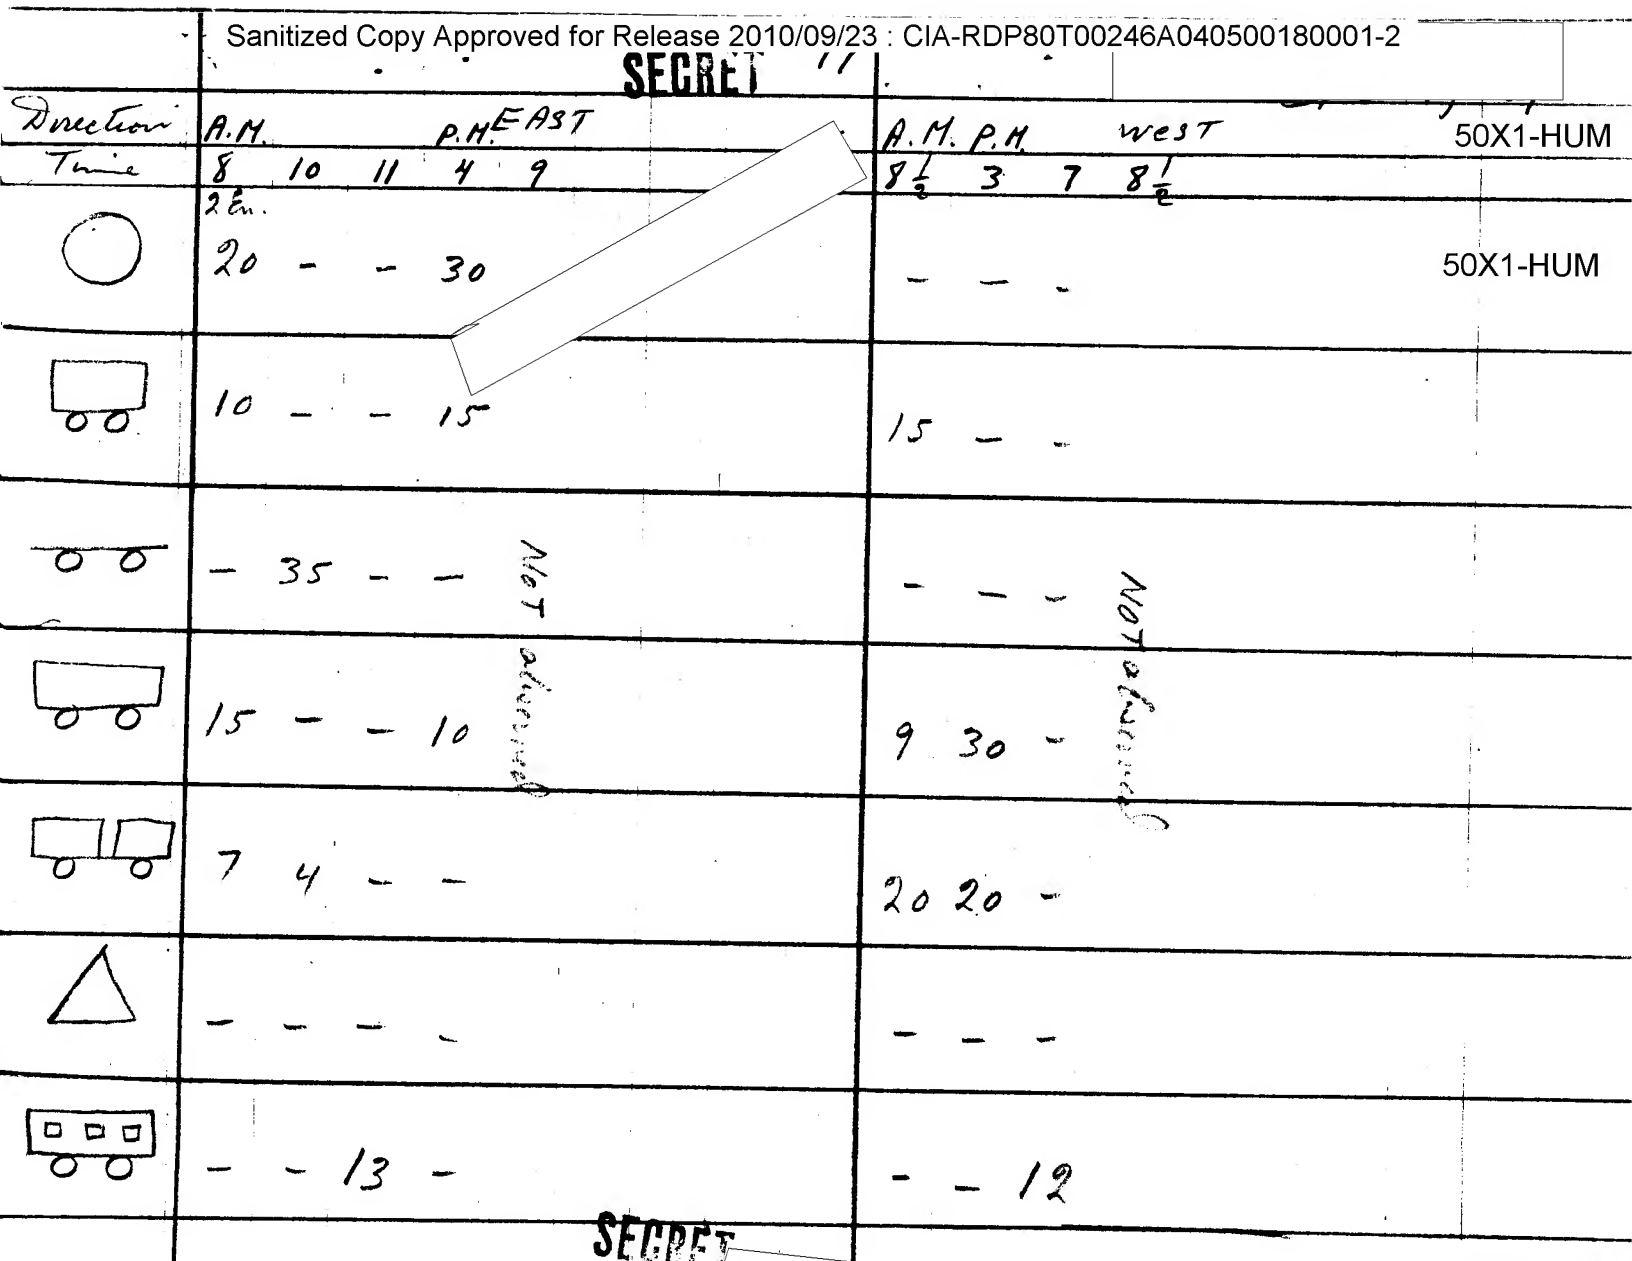 Sanitized Copy Approved for Release 2010/09/23 : CIA-RDP80T00246A040500180001-2
SECRET 11
Direction A.M. P.M. EAST A.M. P.M. WEST 50X1-HUM
Time 8 10 11 4 9 8 1/2 3 7 8 1/2
2 En.
20 - - 30 - - - 50X1-HUM
10 - - 15 15 - -
- 35 - - - - -
NOT observed NOT observed
15 - - 10 9 30 -
7 4 - - 20 20 -
- - - - - - -
- - 13 - - - 12
SECRET